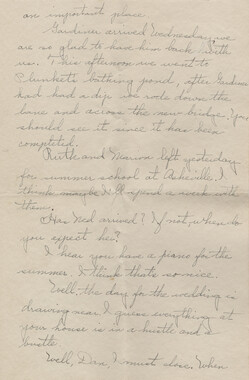 an important place.
Gardiner arrived Wednesday, we
are so glad to have him back with
us. This afternoon we went to
Plunkett's bathing pond, after Gardiner
had had a dip we rode down the
lane and across the new bridge. You
should see it since it has been
completed.
Ruth and Marion left yesterday
for summer school at Asheville. I
think maybe I'll spend a week with
them.
Has Ned arrived? If not, when do
you expect he?
I hear you have a piano for the
summer. I think that's so nice.
Well, the day for the wedding is
drawing near. I guess everything at
your house is in a hustle and a
bustle.
Well, Dear, I must close. When